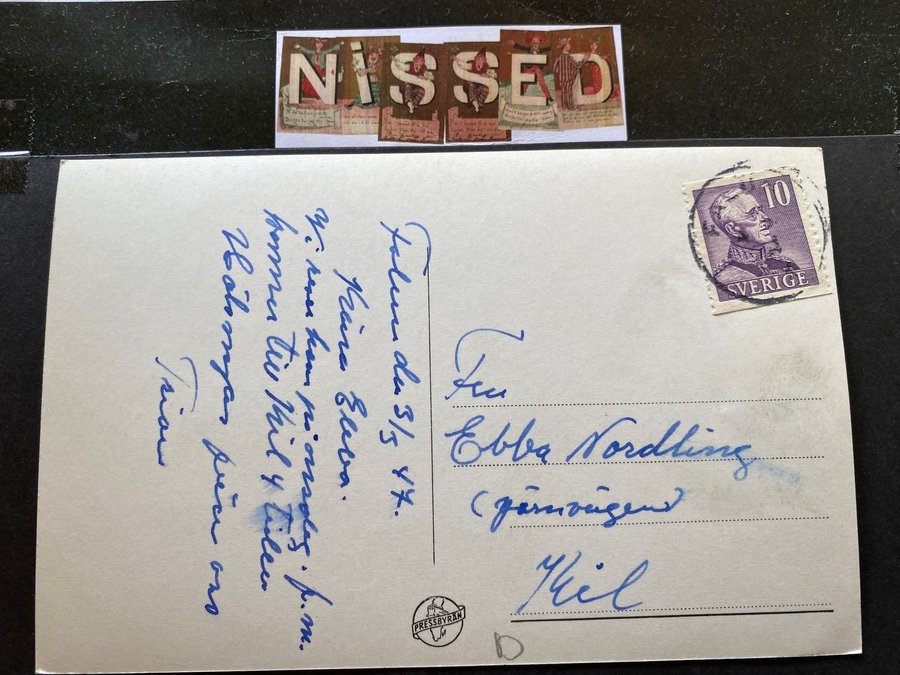 NISSED
10
SVERIGE
Falun den 3/5 47.
Kära Ebba.
Vi på onsdag f.m.
kommer till Kil 4 tiden
Hälsningar från oss
Fru
Ebba Nordling
(järnvägen)
Kil
PRESSBYRÅN
D